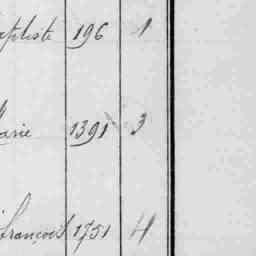 aptiste 196 1
Marie 1391 3
François 1751 4